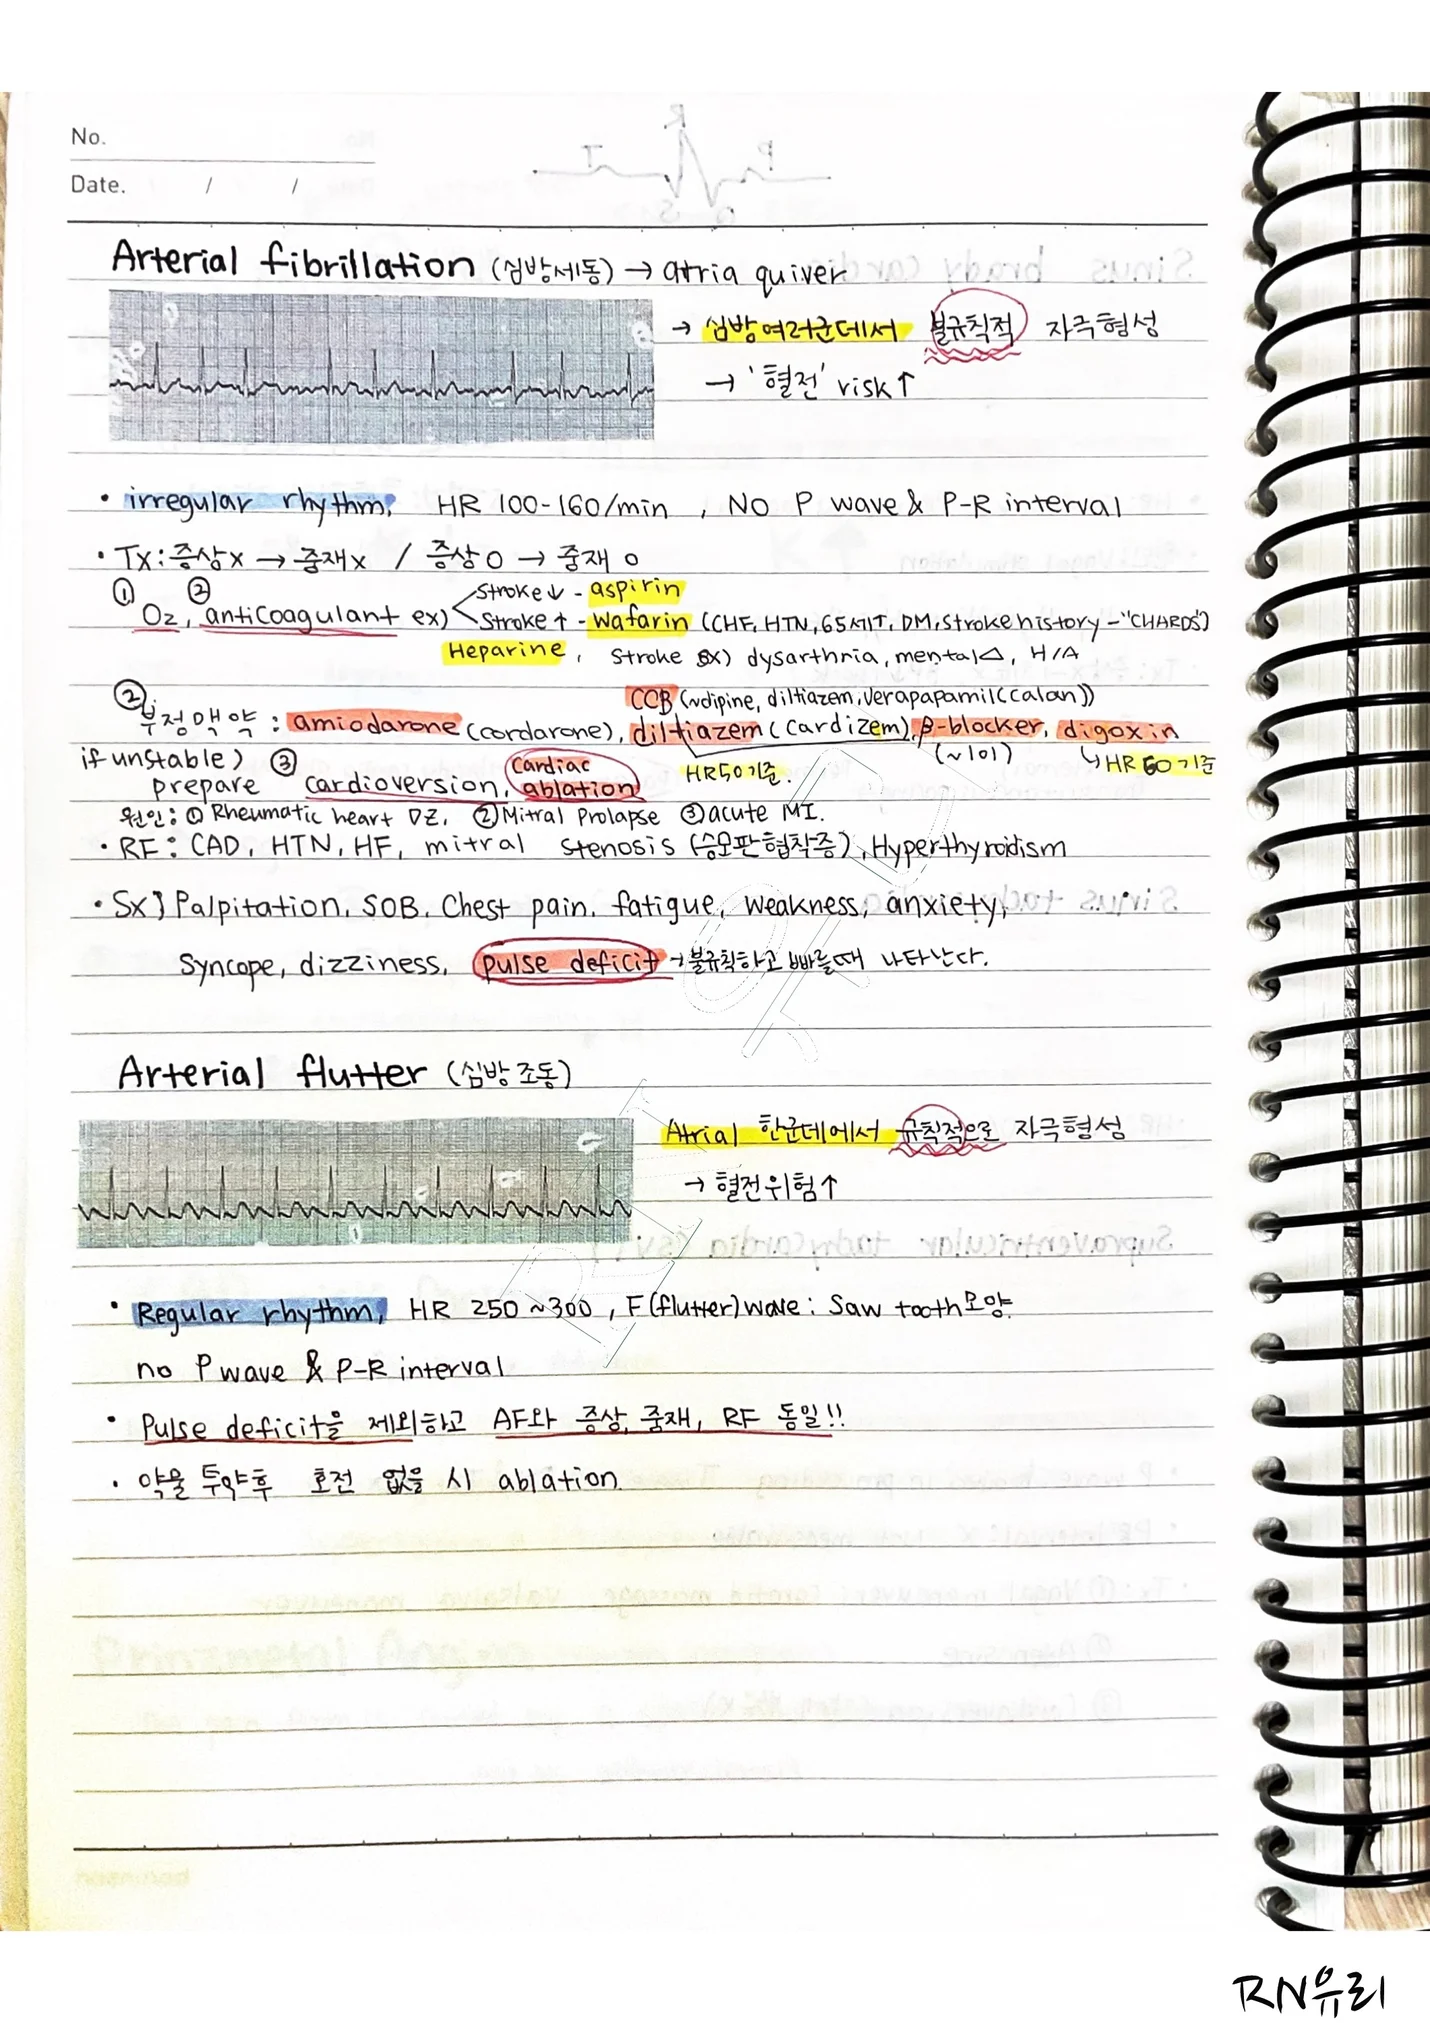 No.
Date. / /
Arterial fibrillation (심방세동) → atria quiver
→ 심방여러군데서 불규칙적 자극형성
→ '혈전' risk↑
• irregular rhythm, HR 100-160/min , NO P wave & P-R interval
• Tx : 증상x → 중재x / 증상o → 중재 o
① ② stroke↓ - aspirin
O₂, anticoagulant ex) stroke↑ - wafarin (CHF, HTN, 65세↑, DM, stroke history -"CHARDS")
Heparine, stroke sx) dysarthria, mental△, H/A
② CCB (~dipine, diltiazem, verapapamil(calan))
부정맥약 : amiodarone (cordarone), diltiazem (cardizem), β-blocker, digoxin
if unstable) ③ cardiac HR50기준. (~lol) ↳HR 60기준
prepare cardioversion, ablation
원인: ① Rheumatic heart DZ, ② Mitral Prolapse ③ acute MI.
• RF : CAD, HTN, HF, mitral stenosis (승모판협착증), Hyperthyroidism
• Sx) Palpitation, SOB, Chest pain, fatigue, weakness, anxiety,
Syncope, dizziness, pulse deficit → 불규칙하고 빠를때 나타난다.
Arterial flutter (심방조동)
Atrial 한군데에서 규칙적으로 자극형성
→ 혈전위험↑
• Regular rhythm, HR 250 ~300 , F(flutter) wave : Saw tooth모양.
no P wave & P-R interval
• Pulse deficit을 제외하고 AF와 증상, 중재, RF 동일!!
• 약물 투약후 호전 없을 시 ablation.
RN유리